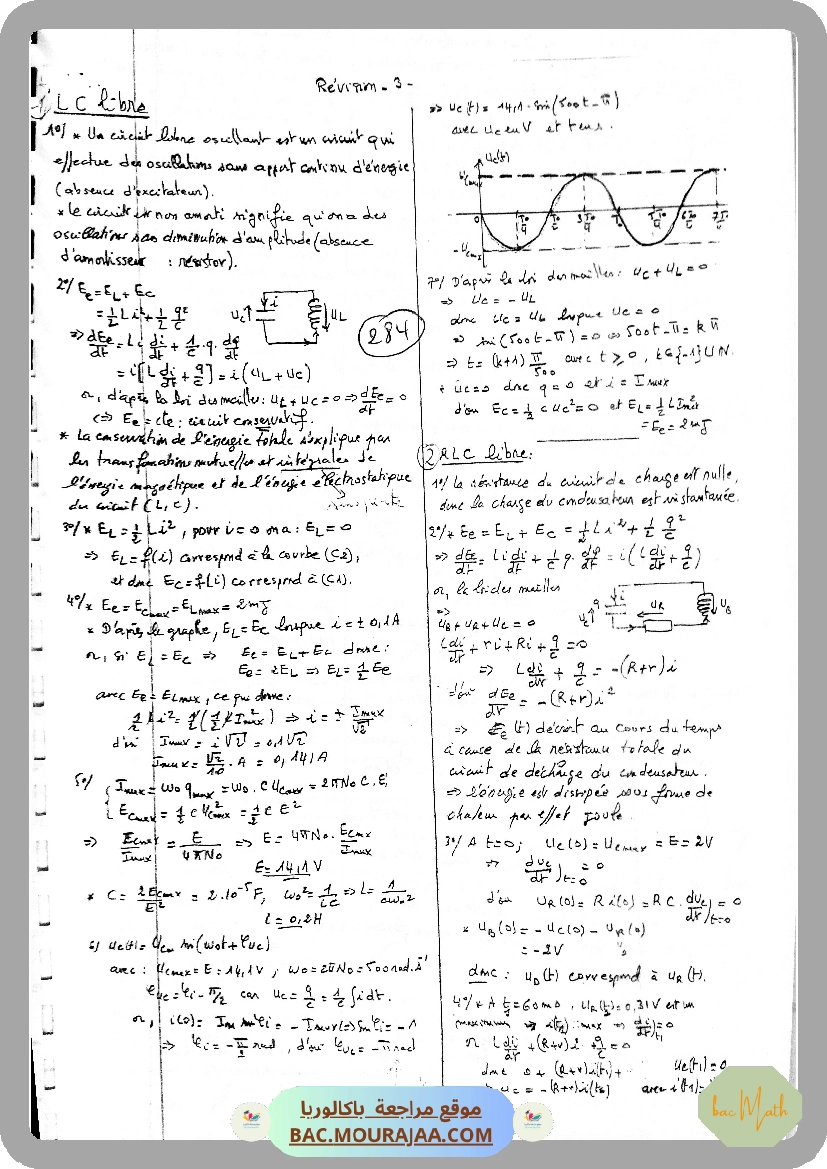 Révision - 3 -
1) LC libre
1°/ * Un circuit libre oscillant est un circuit qui
effectue des oscillations sans apport continu d'énergie
(absence d'excitateur).
* Le circuit est non amorti signifie qu'on a des
oscillations san diminution d'amplitude (absence
d'amortisseur : résistor).
2°/ Ee = EL + Ec
= 1/2 L i² + 1/2 q²/C
=> dEe/dt = L i di/dt + 1/C . q . dq/dt
= i [L di/dt + q/C] = i (uL + uC)
or, d'après la loi des mailles : uL + uC = 0 => dEe/dt = 0
<=> Ee = cte : circuit conservatif.
* La conservation de l'énergie totale s'explique par
les transformations mutuelles et intégrales de
l'énergie magnétique et de l'énergie électrostatique
du circuit (L, C).
uC i uL
284
3°/ * EL = 1/2 L i², pour i = 0 on a : EL = 0
=> EL = f(i) correspond à la courbe (C2),
et donc Ec = f(i) correspond à (C1).
4°/ * Ee = Ecmax = ELmax = 2mJ
* D'après le graphe, EL = Ec lorsque i = ± 0,1A
or, si EL = Ec => Ee = EL + Ec donc :
Ee = 2EL => EL = 1/2 Ee
avec Ee = ELmax, ce qui donne :
1/2 L i² = 1/2 (1/2 L Imax²) => i = ± Imax/√2
d'où Imax = i √2 = 0,1√2
Imax = √2/10 . A = 0,141A
5°/ { Imax = ω0 qmax = ω0 . C Ucmax = 2πN0 C . E
Ecmax = 1/2 C Ucmax² = 1/2 C E²
=> Ecmax/Imax = E/4πN0 => E = 4πN0 . Ecmax/Imax
E = 14,1V
* C = 2Ecmax/E² = 2.10⁻⁵F, ω0² = 1/LC => L = 1/Cω0²
L = 0,2H
6) uc(t) = Ucm sin(ω0t + φuc)
avec : Ucmax = E = 14,1V, ω0 = 2πN0 = 500rad.s⁻¹
φuc = φi - π/2 car uc = q/C = 1/C ∫ i dt.
or, i(0) = Im sin φi = - Imax <=> sin φi = -1
=> φi = -π/2 rad, d'où φuc = -π rad
=> uc(t) = 14,1 . sin(500t - π)
avec uc en V et t en s.
uc(t)
Ucmax
0 T0/4 T0/2 3T0/4 T0 5T0/4 6T0/4 7T0/4
-Ucmax
7°/ D'après la loi des mailles : uC + uL = 0
=> uC = - uL
donc uC = uL lorsque uC = 0
=> sin(500t - π) = 0 <=> 500t - π = kπ
=> t = (k+1) π/500 avec t ≥ 0, k∈{-1}∪N.
+ uc = 0 donc q = 0 et i = Imax
d'où Ec = 1/2 C uc² = 0 et EL = 1/2 L Imax²
= Ee = 2mJ
2 RLC libre :
1°/ la résistance du circuit de charge est nulle,
donc la charge du condensateur est instantanée.
2°/ * Ee = EL + Ec = 1/2 L i² + 1/2 q²/C
=> dEe/dt = L i di/dt + 1/C q . dq/dt = i (L di/dt + q/C)
or, la loi des mailles
=>
uB + uR + uC = 0
q i uC uR uB
L di/dt + ri + Ri + q/C = 0
=> L di/dt + q/C = -(R+r)i
d'où dEe/dt = -(R+r)i²
=> Ee(t) décroit au cours du temps
à cause de la résistance totale du
circuit de décharge du condensateur.
=> l'énergie est dissipée sous forme de
chaleur par effet joule.
3°/ A t=0 ; uc(0) = Ucmax = E = 2V
=> duc/dt)t=0 = 0
d'où uR(0) = R i(0) = RC . duc/dt)t=0 = 0
* uB(0) = - uc(0) - uR(0)
= -2V
donc : uD(t) correspond à uR(t).
4°/ * A t1 = 60ms, uR(t1) = 0,31V est un
maximum => i(t1) : max => di/dt)t1 = 0
or L di/dt + (R+r)i + q/C = 0
donc 0 + (R+r)i(t1) + uc(t1) = 0
uc = -(R+r)i(t1) avec i(t1) =
موقع مراجعة باكالوريا
BAC.MOURAJAA.COM
bac Math